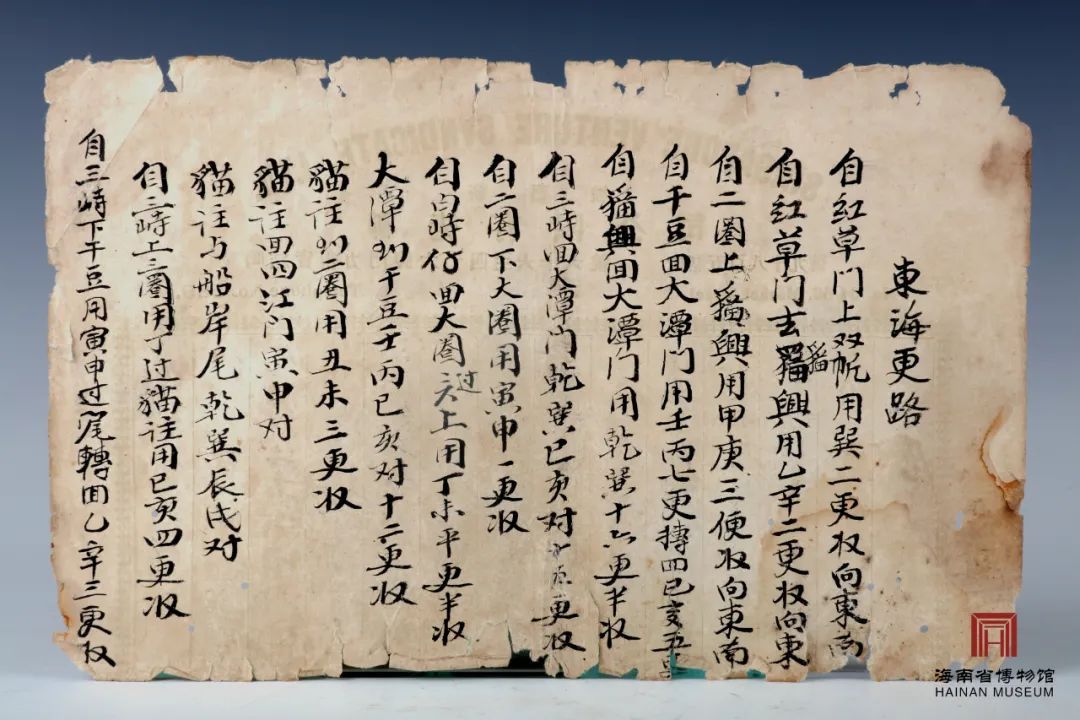 東海更路
自紅草门上双帆用巽二更收向東南
自紅草门去貓興用乙辛二更收向東
貓
自二圈上貓興用甲庚三便收向東南
自干豆回大潭门用壬丙七更轉回巳亥五
自貓興回大潭门用乾巽十六更半收
自三峙回大潭门乾巽巳亥对 更收
自二圈下大圈用寅申一更收
自白峙仔回大圈 上用丁未平更半收
过
大潭到干豆壬丙巳亥对十二更收
貓注到二圈用丑未三更收
貓注回四江门寅申对
貓注与船岸尾乾巽辰戌对
自三峙上三圈用丁过貓注用巳亥四更收
自三峙下干豆用寅申过尾轉回乙辛三更收
VENTURE SYNDICATE
海南省博物馆
HAINAN MUSEUM